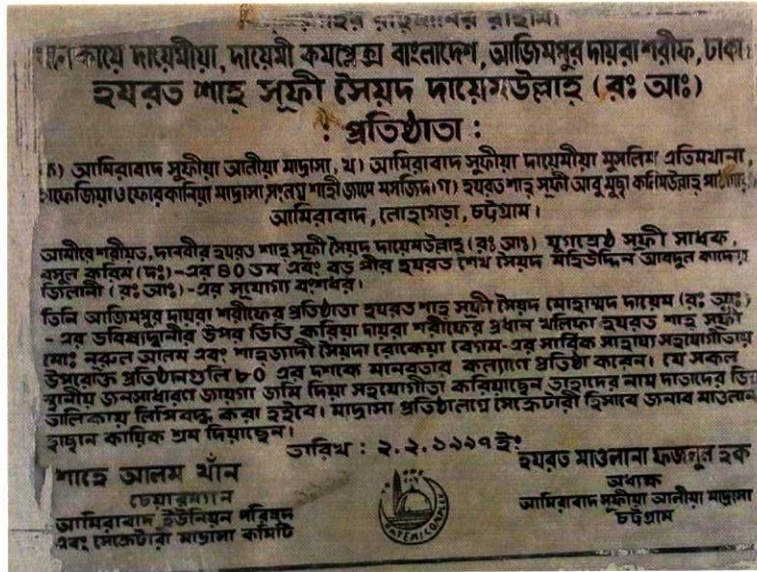 রাহমানের রাহিম।
খানকায়ে দায়েমীয়া, দায়েমী কমপ্লেক্স বাংলাদেশ, আজিমপুর দায়রা শরীফ, ঢাকা।
হযরত শাহ্ সূফী সৈয়দ দায়েমউল্লাহ্ (রঃ আঃ)
: প্রতিষ্ঠাতা :
ক) আমিরাবাদ সুফীয়া আলীয়া মাদ্রাসা, খ) আমিরাবাদ সুফীয়া দায়েমীয়া মুসলিম এতিমখানা,
হাফেজিয়া ও ফোরকানিয়া মাদ্রাসা, সংলগ্ন শাহী জামে মসজিদ। গ) হযরত শাহ্ সূফী আবু মুছা কলিমউল্লাহ্ পাঠাগার।
আমিরাবাদ, লোহাগড়া, চট্টগ্রাম।
আমীরে শরীয়ত, দানবীর হযরত শাহ্ সূফী সৈয়দ দায়েমউল্লাহ্ (রঃ আঃ) যুগশ্রেষ্ঠ সূফী সাধক,
রসূল করিম (দঃ)-এর ৪০ তম এবং বড় পীর হযরত শেখ সৈয়দ মহিউদ্দিন আবদুল কাদের
জিলানী (রঃ আঃ)-এর সুযোগ্য বংশধর।
তিনি আজিমপুর দায়রা শরীফের প্রতিষ্ঠাতা হযরত শাহ্ সূফী সৈয়দ মোহাম্মদ দায়েম (রঃ আঃ)
-এর ভবিষ্যদ্বানীর উপর ভিত্তি করিয়া দায়রা শরীফের প্রধান খলিফা হযরত শাহ্ সূফী
মোঃ নূরুল আলম এবং শাহ্জাদী সৈয়দা রোকেয়া বেগম-এর সার্বিক সাহায্য সহযোগীতায়
উপরোক্ত প্রতিষ্ঠানগুলি ৮০ এর দশকে মানবতার কল্যাণে প্রতিষ্ঠা করেন। যে সকল
স্থানীয় জনসাধারণে জায়গা জমি দিয়া সহযোগীতা করিয়াছেন তাহাদের নাম দাতাদের ভিন্ন
তালিকায় লিপিবদ্ধ করা হইবে। মাদ্রাসা প্রতিষ্ঠালগ্নে সেক্রেটারী হিসাবে জনাব মাওলানা
হাছান কায়িক শ্রম দিয়াছেন।
তারিখ : ২.২.১৯৯৭ ইং
শাহে আলম খাঁন
চেয়ারম্যান
আমিরাবাদ ইউনিয়ন পরিষদ
এবং সেক্রেটারী মাদ্রাসা কমিটি
হযরত মাওলানা ফজলুল হক
অধ্যক্ষ
আমিরাবাদ সুফীয়া আলীয়া মাদ্রাসা
চট্টগ্রাম